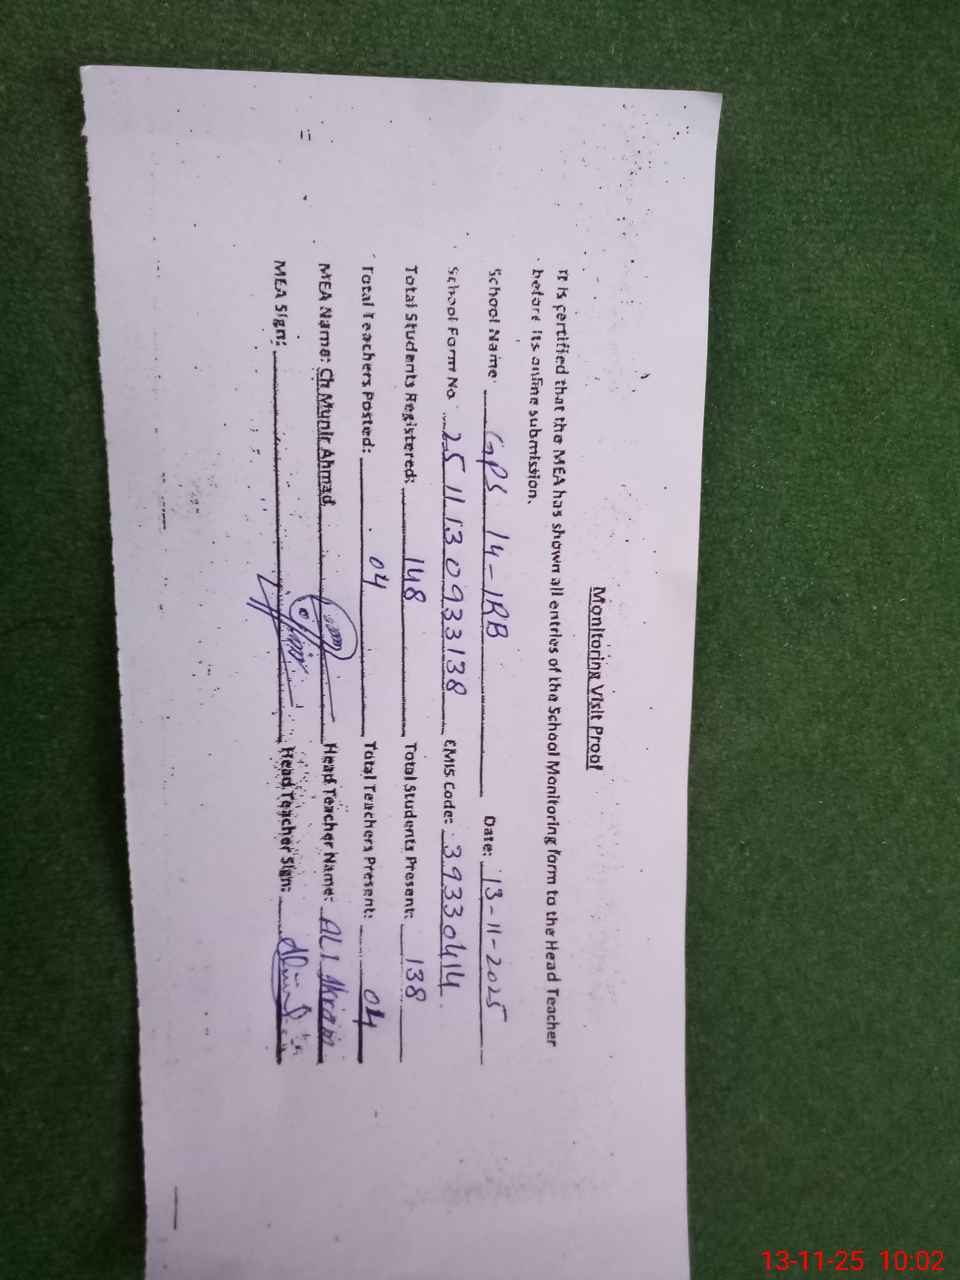 Monitoring Visit Proof
It is certified that the MEA has shown all entries of the School Monitoring form to the Head Teacher
before its online submission.
School Name GPS 14-1RB Date: 13-11-2025
School Form No 2511130933138 EMIS Code: 39330414
Total Students Registered: 148 Total Students Present: 138
Total Teachers Posted: 04 Total Teachers Present: 04
MEA Name: Ch Munir Ahmad Head Teacher Name: ALI Akram
MEA Sign: Head Teacher Sign:
13-11-25 10:02